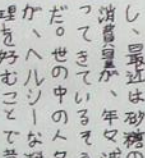 し、最近は砂糖の
消費量が、年々減
ってきているそう
だ。世の中の人々
が、ヘルシーな料
理を好むことで